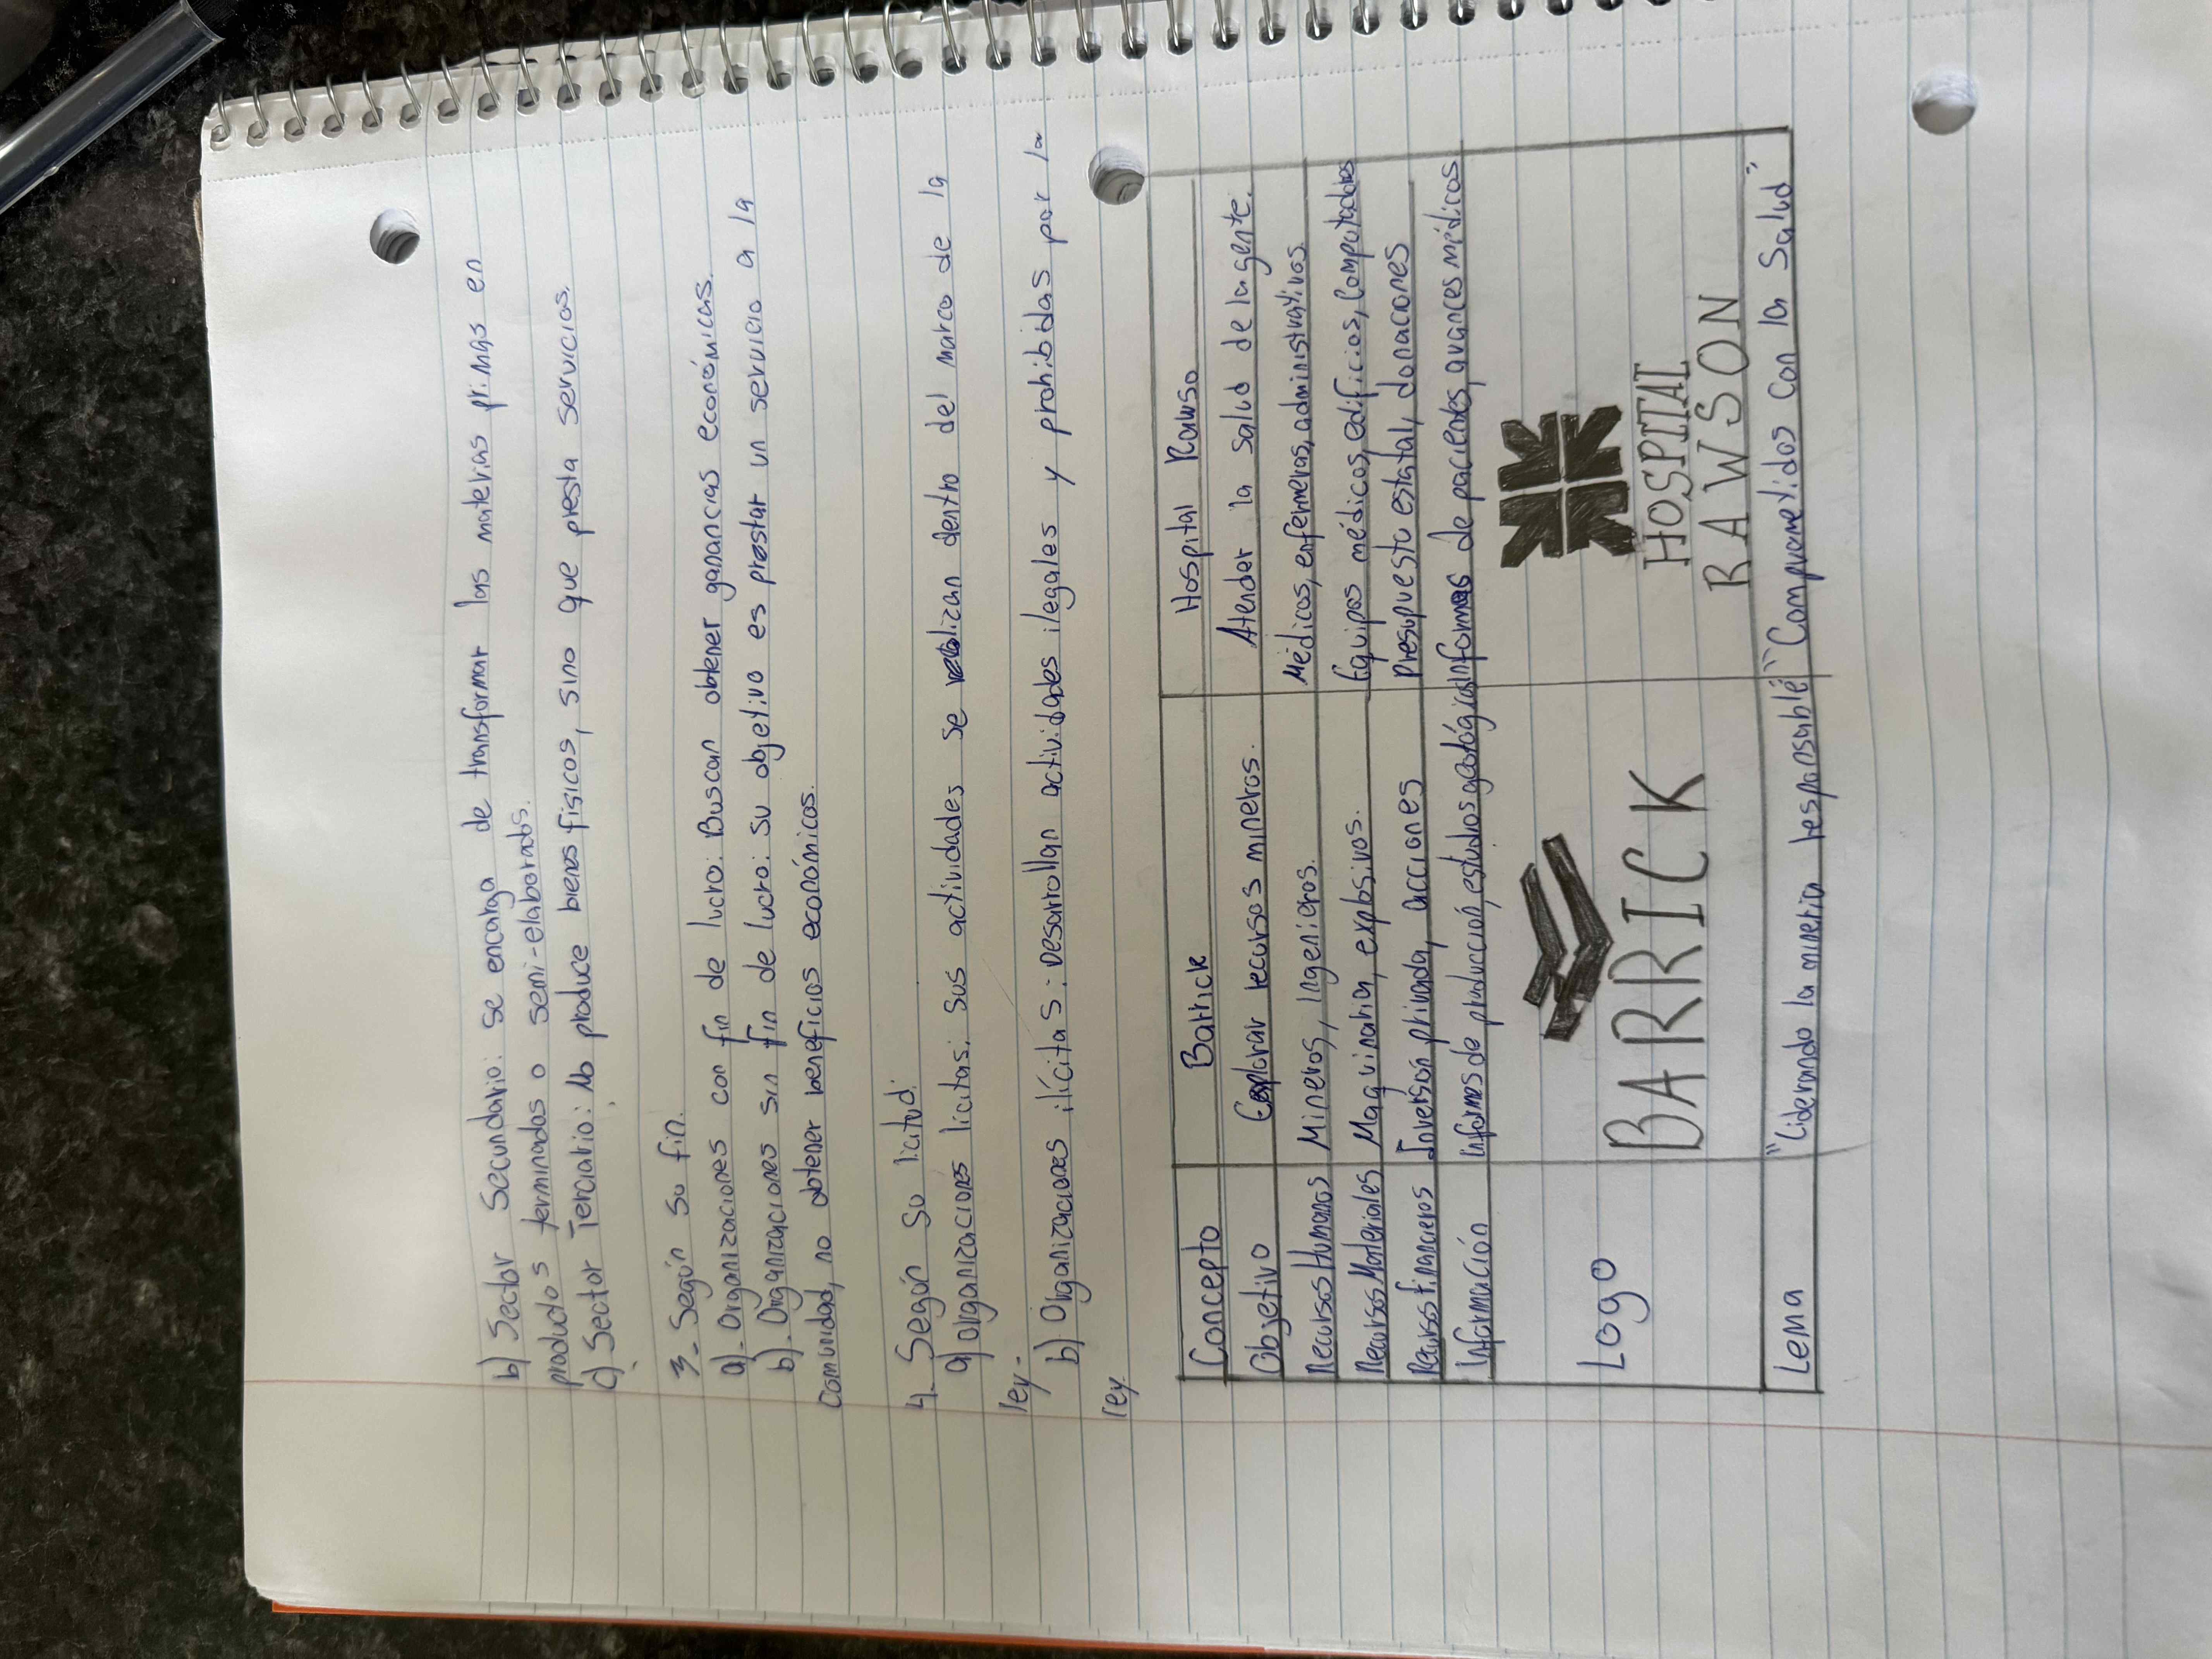 b) Sector Secundario: se encarga de transformar las materias primas en
productos terminados o semi-elaborados.
c) Sector Terciario: No produce bienes fisicos, sino que presta servicios.
3- Según su fin.
a)- Organizaciones con fin de lucro: Buscan obtener ganancias económicas.
b)- Organizaciones sin fin de lucro: su objetivo es prestar un servicio a la
comunidad, no obtener beneficios económicos.
4- Según su licitud:
a) organizaciones licitas: sus actividades se realizan dentro del marco de la
ley.
b) Organizaciones ilícitas: Desarrollan actividades ilegales y prohibidas por la
ley.
Concepto Barrick Hospital Rawso
Objetivo Explorar recursos mineros. Atender la salud de la gente.
Recursos Humanos Mineros, Ingenieros. Médicos, enfermeras, administrativos.
Recursos Materiales Maquinaria, explosivos. Equipos médicos, edificios, computadoras
Recursos financieros Inversión privada, acciones Presupuesto estatal, donaciones
Información Informes de producción, estudios geológicos Informes de pacientes, avances médicos
Logo BARRICK HOSPITAL
RAWSON
Lema "Liderando la mineria responsable" "Comprometidos con la Salud"